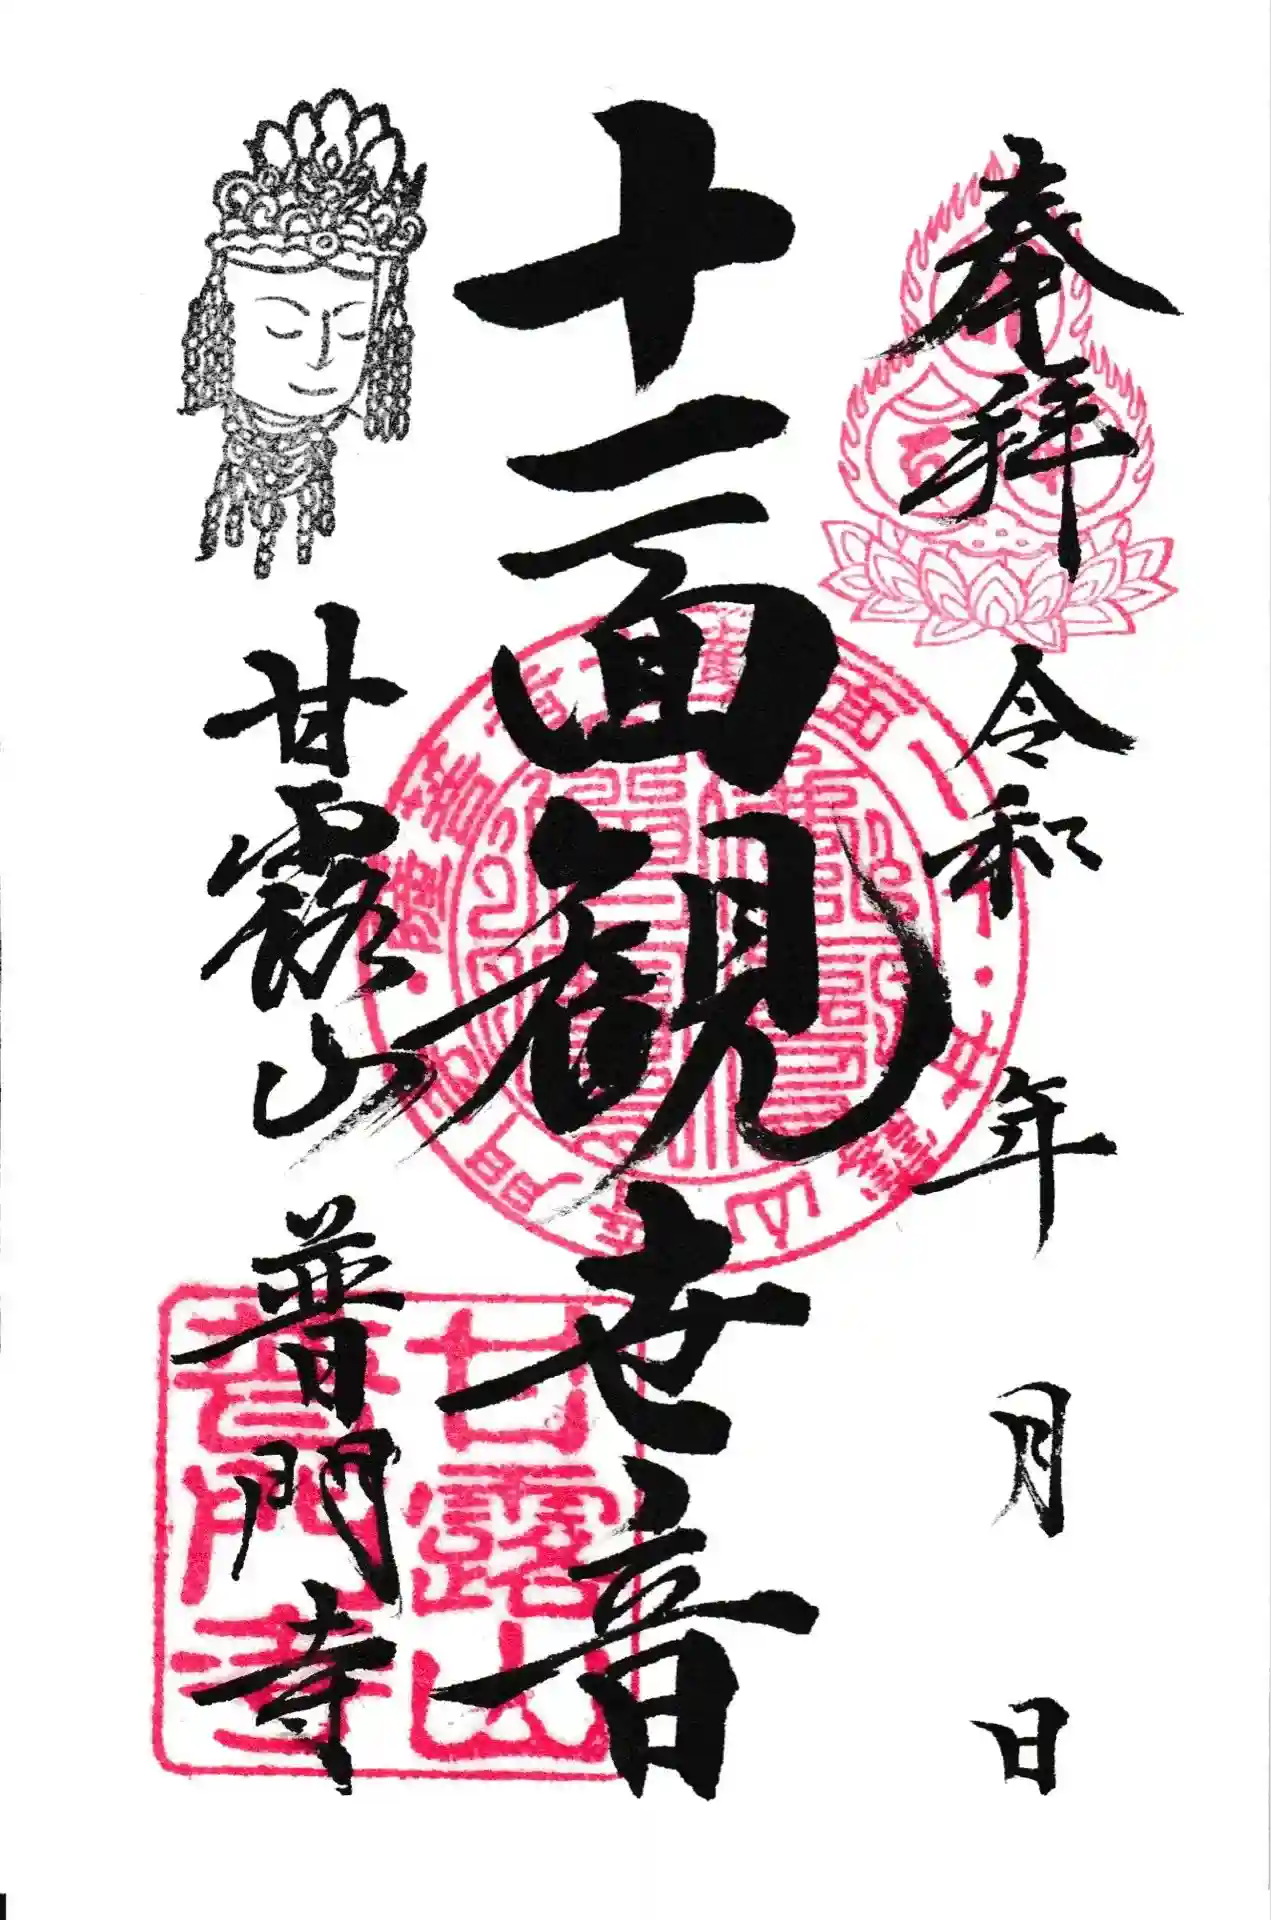 奉拝
令和 年 月 日
十一面観世音
甘露山 普門寺
甘露山
普門寺